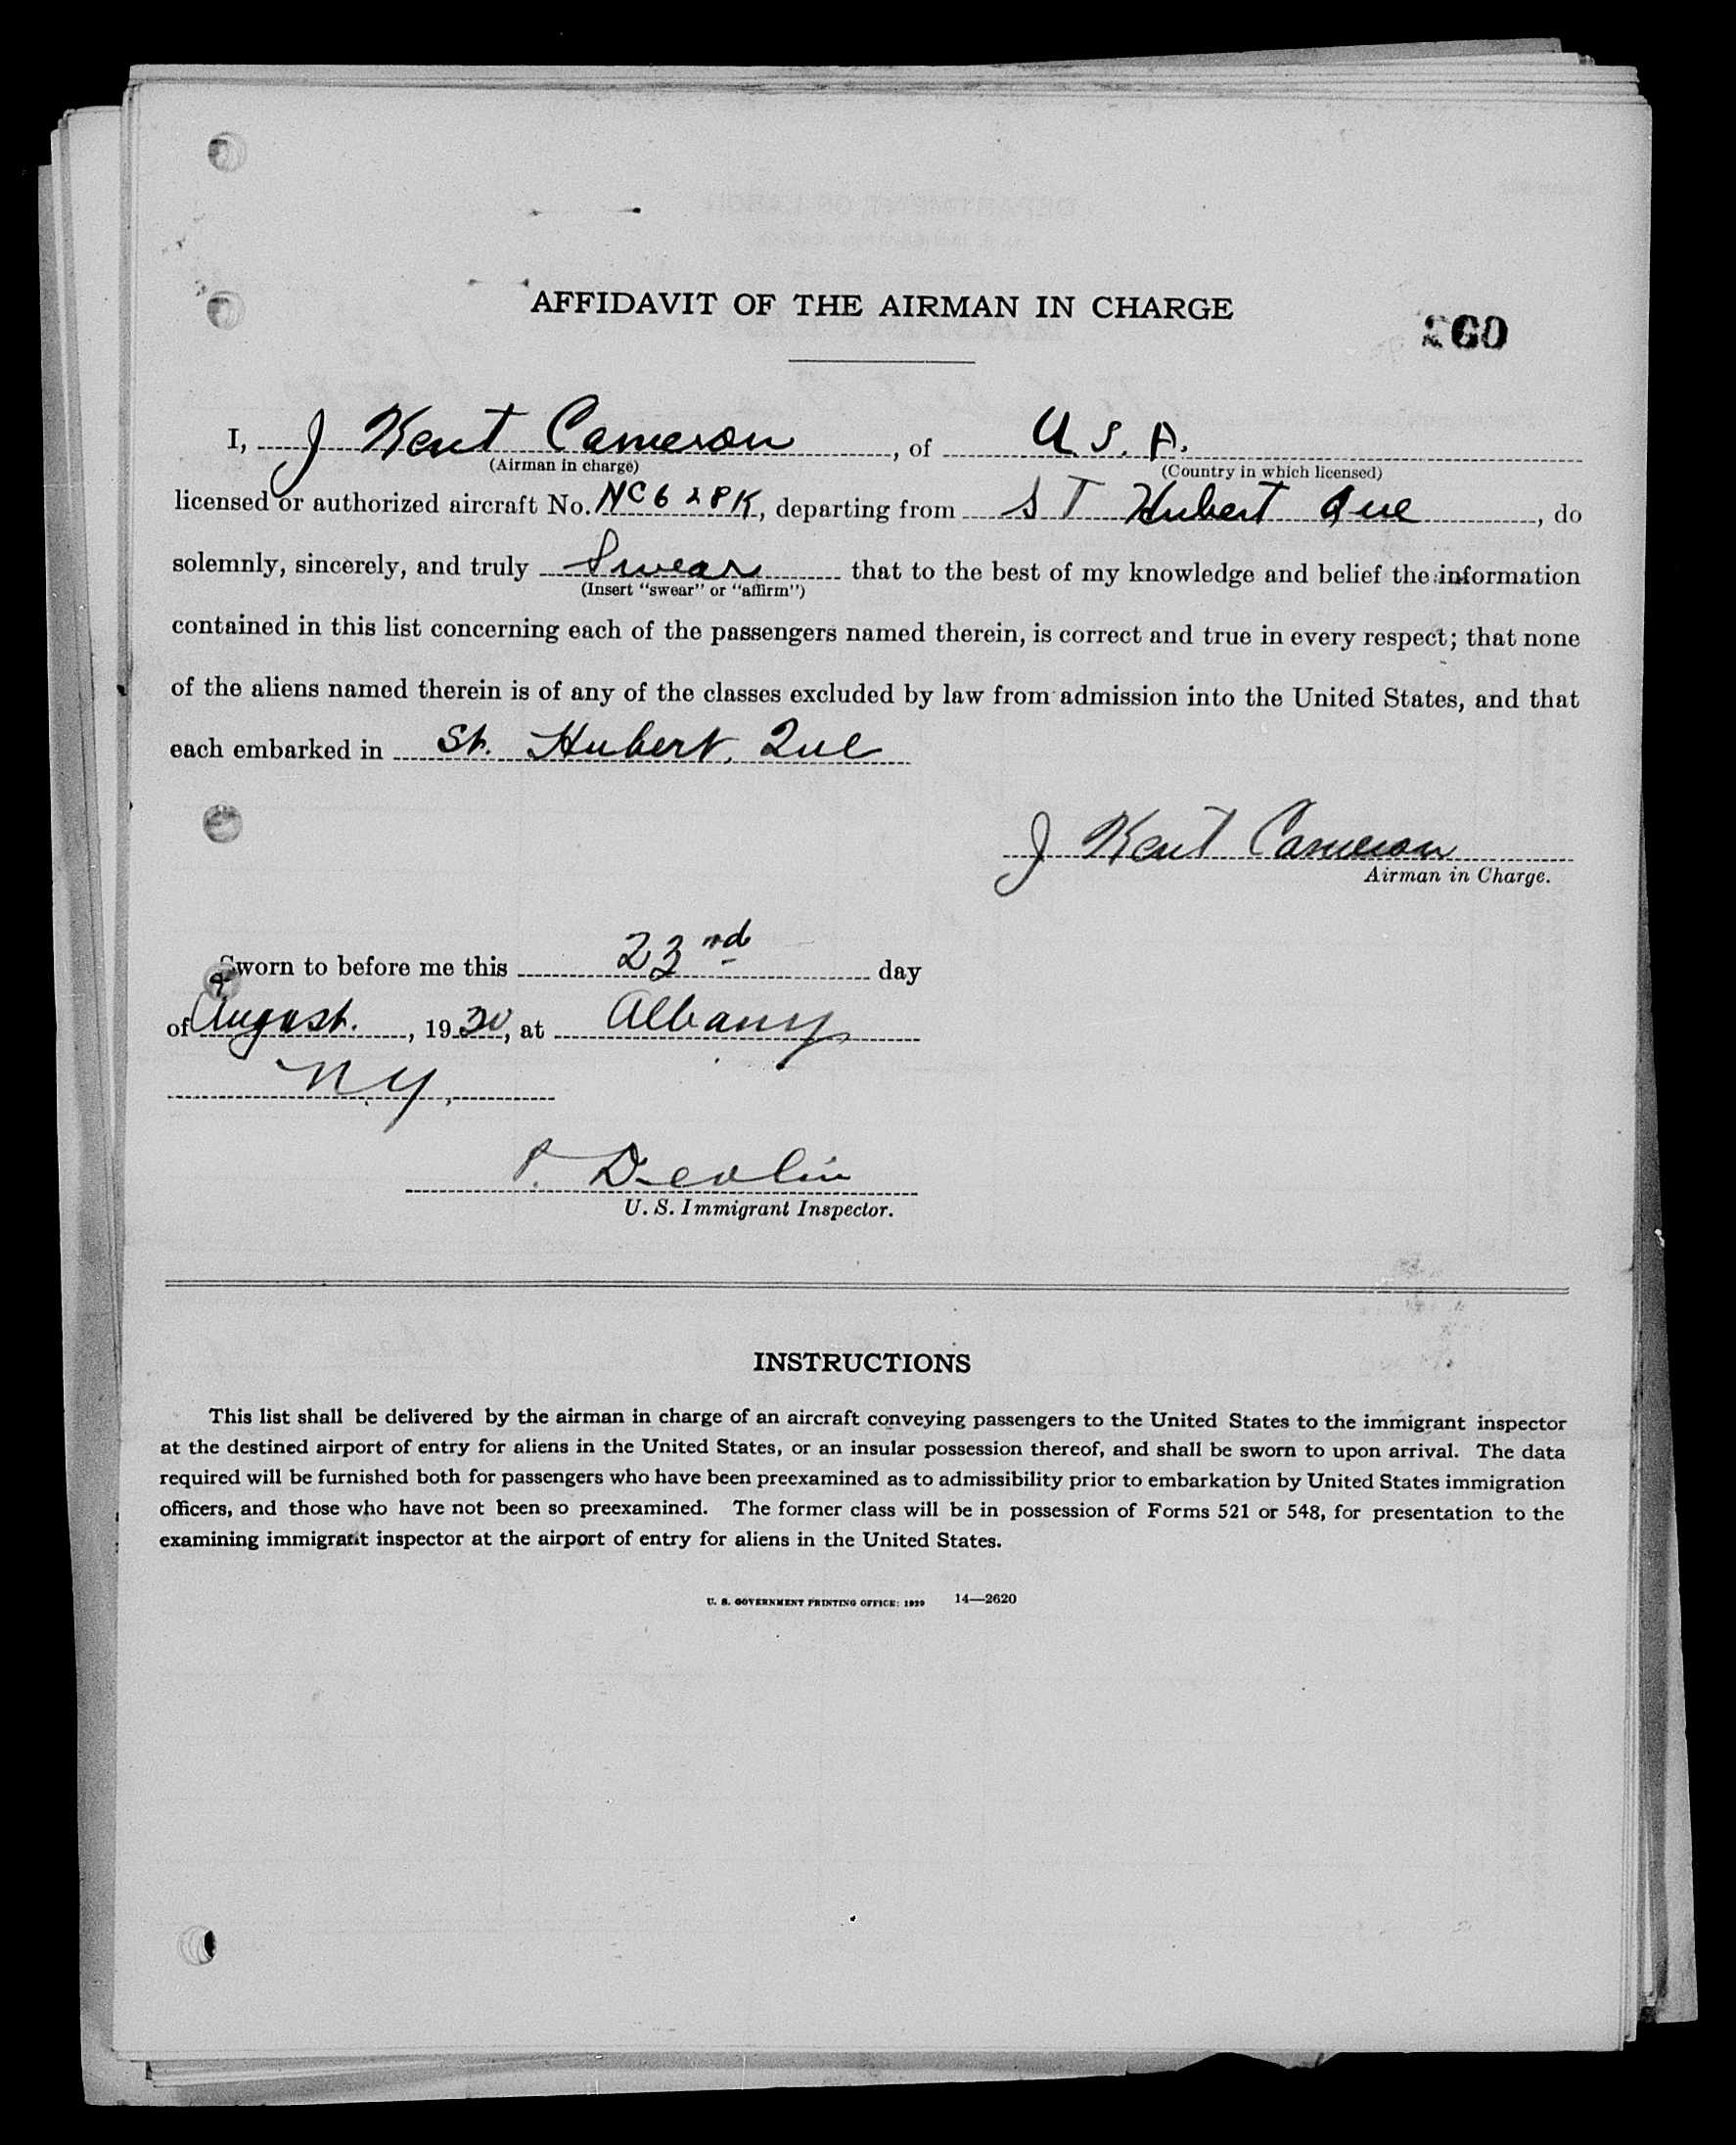 AFFIDAVIT OF THE AIRMAN IN CHARGE
260
I, J Kent Cameron, of U S. A.
(Airman in charge) (Country in which licensed)
licensed or authorized aircraft No. NC628K, departing from ST Hubert Que, do
solemnly, sincerely, and truly Swear that to the best of my knowledge and belief the information
(Insert "swear" or "affirm")
contained in this list concerning each of the passengers named therein, is correct and true in every respect; that none
of the aliens named therein is of any of the classes excluded by law from admission into the United States, and that
each embarked in St. Hubert, Que
J Kent Cameron
Airman in Charge.
Sworn to before me this 23rd day
of August., 1930, at Albany
N.Y.
P. Devlin
U. S. Immigrant Inspector.
INSTRUCTIONS
This list shall be delivered by the airman in charge of an aircraft conveying passengers to the United States to the immigrant inspector
at the destined airport of entry for aliens in the United States, or an insular possession thereof, and shall be sworn to upon arrival. The data
required will be furnished both for passengers who have been preexamined as to admissibility prior to embarkation by United States immigration
officers, and those who have not been so preexamined. The former class will be in possession of Forms 521 or 548, for presentation to the
examining immigrant inspector at the airport of entry for aliens in the United States.
U. S. GOVERNMENT PRINTING OFFICE: 1929 14—2620